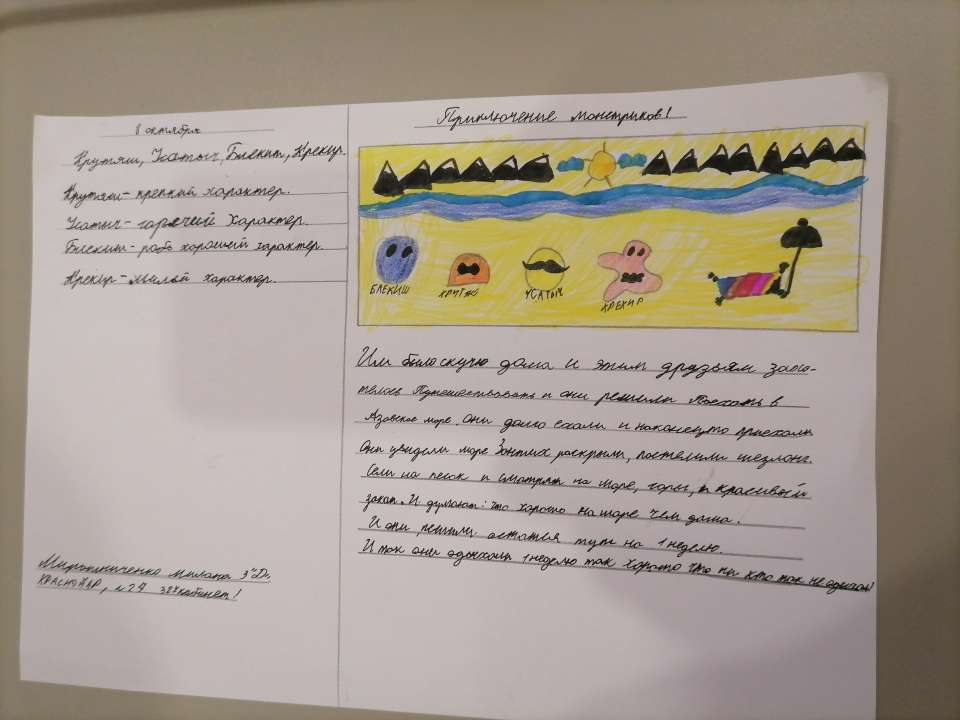 8 октября
Крутяш, Усатыч, Блекиш, Крекир.
Крутяш - крепкий характер.
Усатыч - горячий характер.
Блекиш - робо хороший характер.
Крекир - милый характер.
Мирошниченко Милана 3"Д".
КРАСНОДАР, 38 кабинет!
Приключение монстриков!
БЛЕКИШ
КРУТЯШ
УСАТЫЧ
КРЕКИР
Им было скучно дома и этим друзьям захо-
телось Путешествовать и они решили Поехать в
Азовское море. Они долго ехали и наконецто приехали
Они увидели море Зонтик раскрыли, постелили шезлонг.
Сели на песок и смотрят на море, горы, и красивый
закат. И думают: что хорошо на море чем дома.
И они решили остатся тут на 1 неделю.
И так они одыхали 1 неделю так хорошо что ни кто так не одыхал!